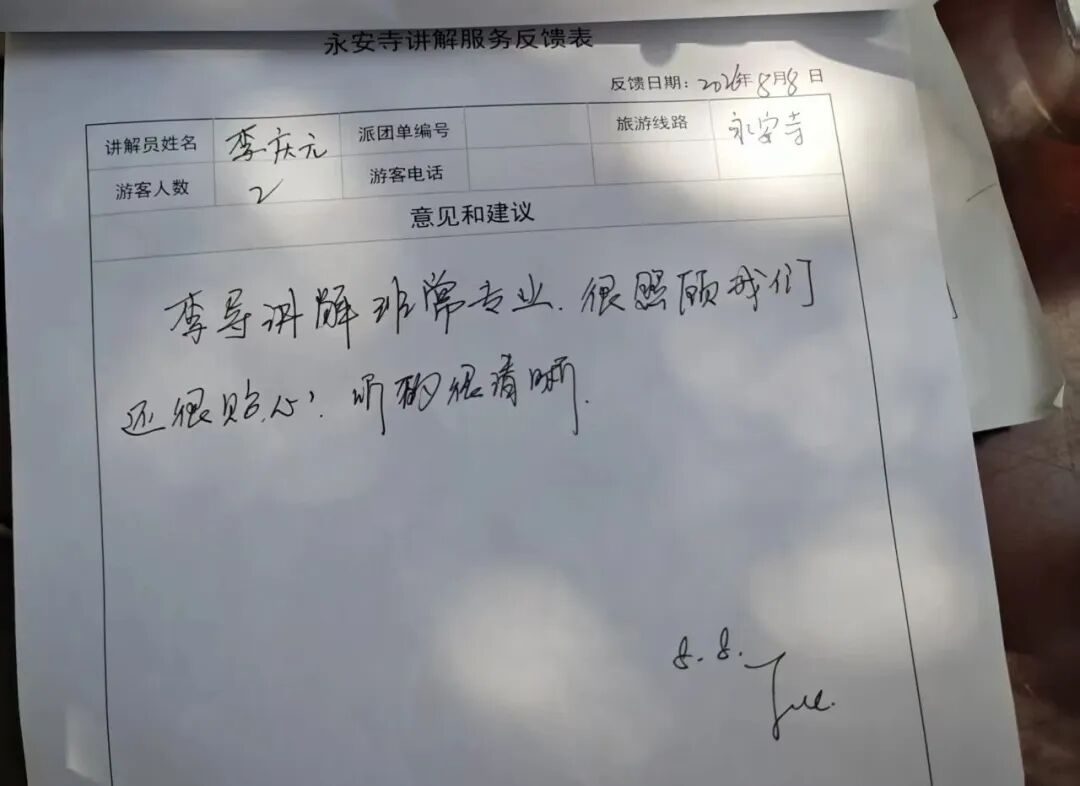 永安寺讲解服务反馈表
反馈日期: 2026年8月8日
讲解员姓名 李庆元 派团单编号 旅游线路 永安寺
游客人数 2 游客电话
意见和建议
李导讲解非常专业.很照顾我们
还很贴心.听的很清晰.
8.8.